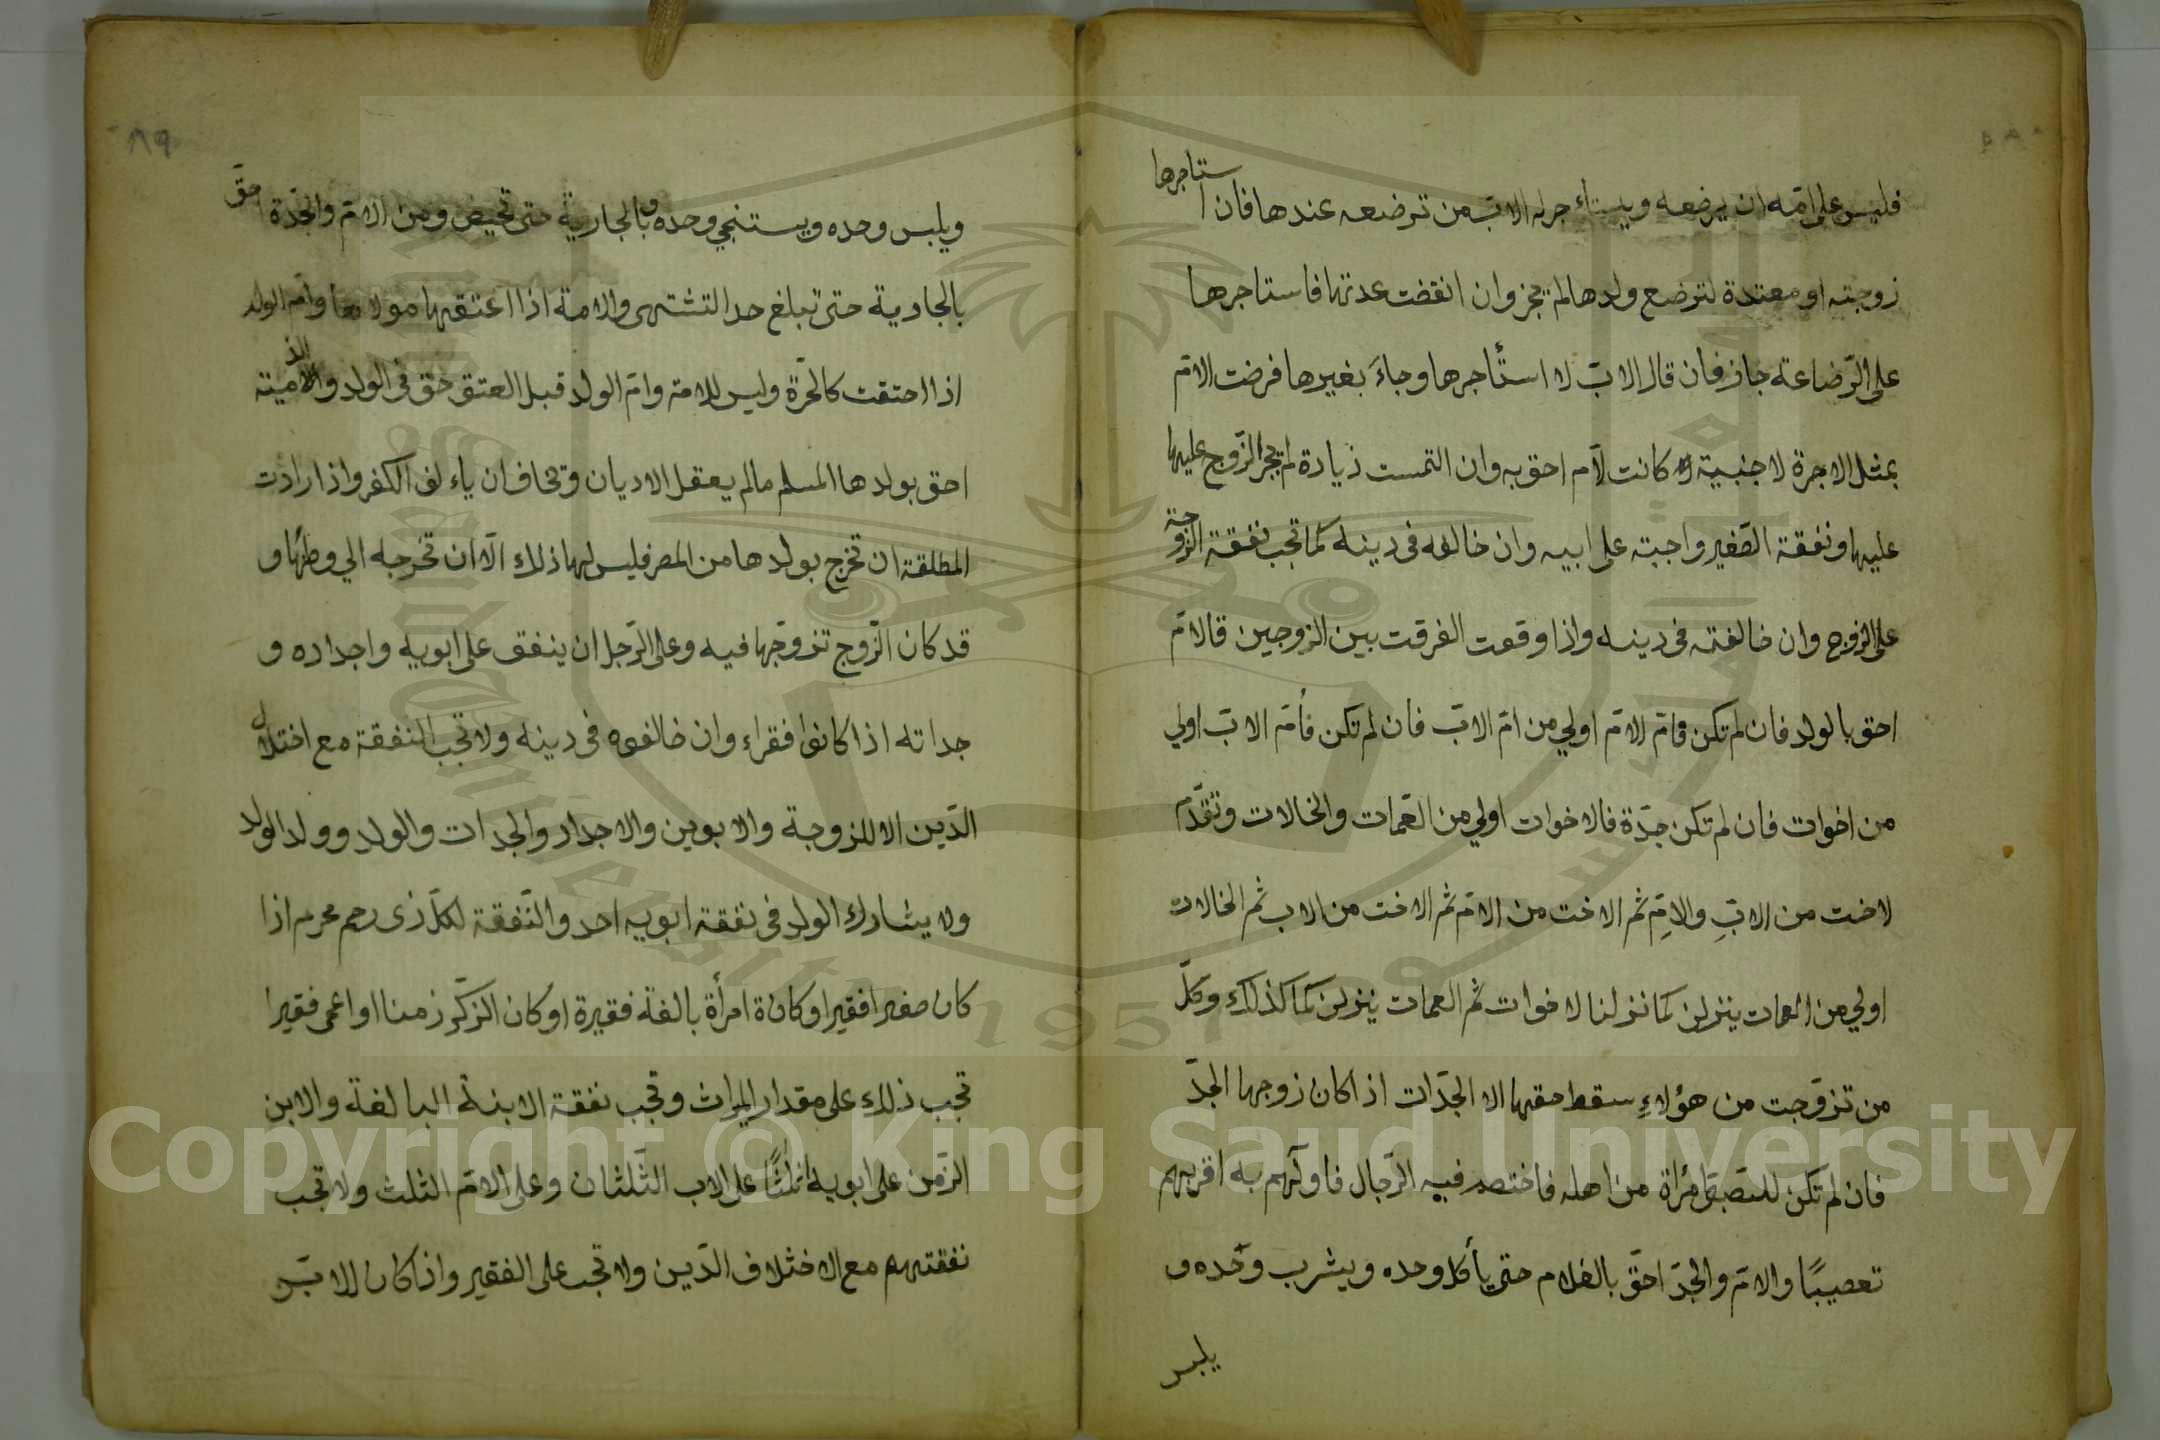 فليس على امّه ان يرضعه ويستاء جر له الابّ من ترضعه عندها فان استاجرها
زوجته او معتدة لترضع ولدها لم يجز وان انقضت عدتها فاستاجرها
على الرّضاعة جاز فان قال الابّ لا استأجرها وجاءَ بغيرها فرضت الامّ
بمثل الاجرة لاجنبية كانت لاّم احق به وان التمست زيادة لم يجبر الزّوج عليها
عليها ونفقة الصّغير واجبته على ابيه وان خالفه فى دينه كما تجب نفقة الزّوجة
على الزوج وان خالفته فى دينه واذا وقعت الفرقت بين الزوجين فالامّ
احق بالولد فان لم تكن فامّ الامّ اولي من امّ الابّ فان لم تكن فأمّ الابّ اولي
من اخوات فان لم تكن جدّة فالاخوات اولي من العمات والخالات وتقدّم
لاخت من الابّ والامّ ثم الاخت من الامّ ثم الاخت من الاب ثم الخالات
اولي من العمات ينزلن كما نزلنا لاخوات ثم العمات ينزلن كما كذلك وكلّ
من تزوّجت من هؤلاءِ سقط حقها الا الجدّات اذا كان زوجها الجدّ
فان لم تكن للصبى امرأة من اهله فاختصم فيه الرّجال فاولٰهم به اقربهم
تعصيبًا والامّ والجدّ احقّ بالغلام حتى يأكل وحده ويشرب وحّده و
يلبس
ويلبس وحده ويستنجي وحده وبالجارية حتى تحيض ومن الامّ والجدّة احقّ
بالجارية حتى تبلغ حدا لتشتهى والامة اذا اعتقها مولاها وامّ الولد
اذا احتقت كالحرّة وليس للامة وامّ الولد قبل العتق حق فى الولد والذّميّة
احق بولدها المسلم مالم يعقل الاديان وتخاف ان ياء لف الكفر واذا رادت
المطلقة ان تخرج بولدها من المصر فليس لها ذلك الّا ان تخرجه الي وطنها و
قد كان الزّوج تزوّجها فيه وعلى الرّجل ان ينفق على ابويه واجداده و
جداته اذا كانوا فقراء وان خالفوه فى دينه ولا تجب النفقة مع اختلاف
الدّين الا للزوجة والابوين والاجداد والجدات والولد وولد الولد
ولا يشارك الولد فى نفقة ابويه احد والنّفقة لكلّ ذى رحم محرم اذا
كان صغيرا فقيرا او كانة امرأة بالغة فقيرة او كان الزكّر زمنا او اعمى فقيرا
تجب ذلك على مقدار الميراث وتجب نفقة الابنة البالغة والابن
الزّمن على ابويه اثلثًا على الاب الثّلثان وعلى الامّ الثلث ولا تجب
نفقتهم مع الاختلاف الدّين ولا تجب على الفقير واذا كان للابنّ
٨٩
Copyright © King Saud University
1957